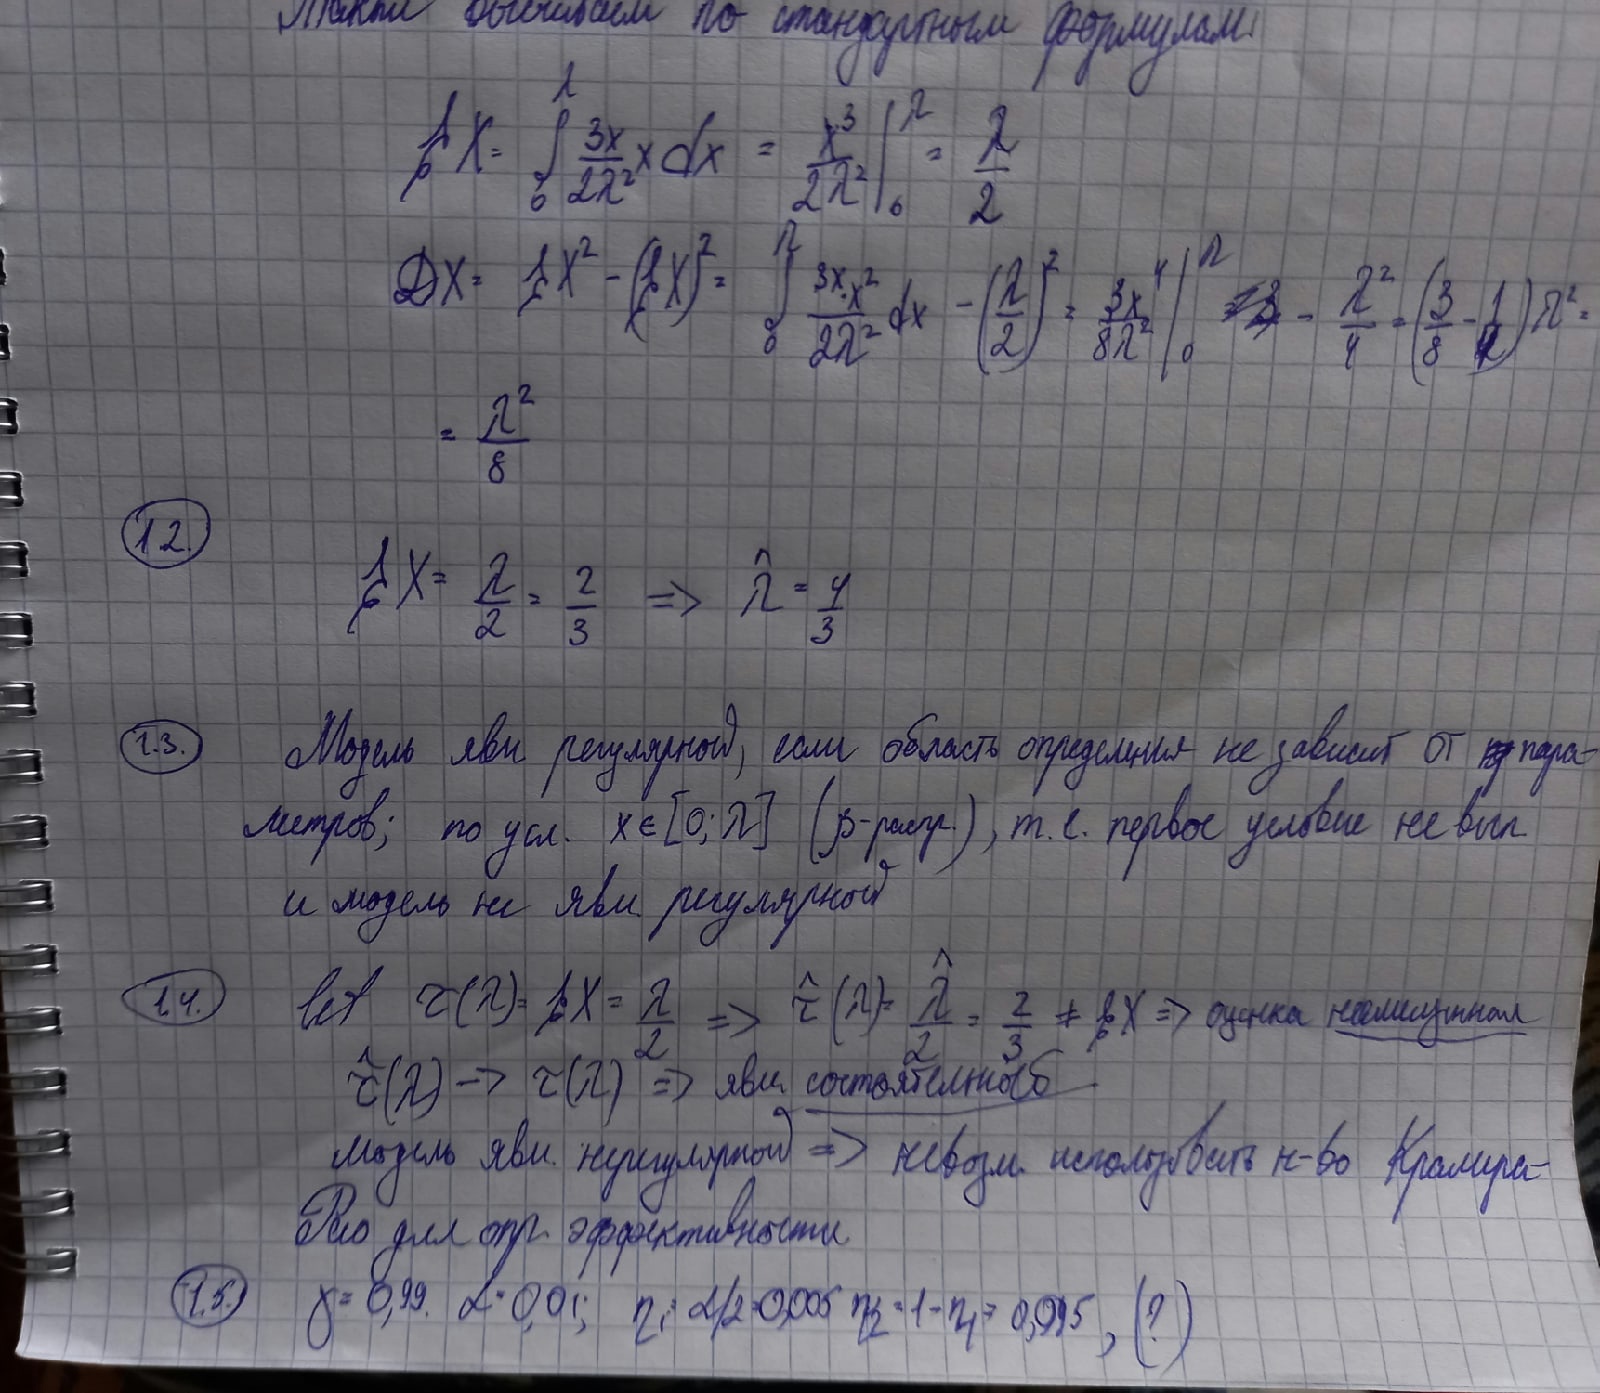 вычисляем по стандартным формулам:
EX = ∫₀^λ 3x/2λ² x dx = x³/2λ² |₀^λ = λ/2
DX = EX² - (EX)² = ∫₀^λ 3x·x²/2λ² dx - (λ/2)² = 3x⁴/8λ² |₀^λ - λ²/4 = (3/8 - 1/4) λ² =
= λ²/8
1.2. EX = λ/2 = 2/3 => λ̂ = 4/3
1.3. Модель явл регулярной, если область определения не зависит от пара-
метров; по усл. x ∈ [0; λ] (β-распр.), т.е. первое условие не вып
и модель не явл. регулярной
1.4. let τ(λ) = EX = λ/2 => τ̂(λ) = λ̂/2 = 2/3 ≠ EX => оценка несмещенная
τ̂(λ) -> τ(λ) => явл. состоятельной
модель явл. нерегулярной => невозм. использовать н-во Крамера-
Рао для опр. эффективности
1.5. γ = 0,99. α = 0,01; η₁ = α/2 = 0,005 η₂ = 1 - η₁ = 0,995, (?)